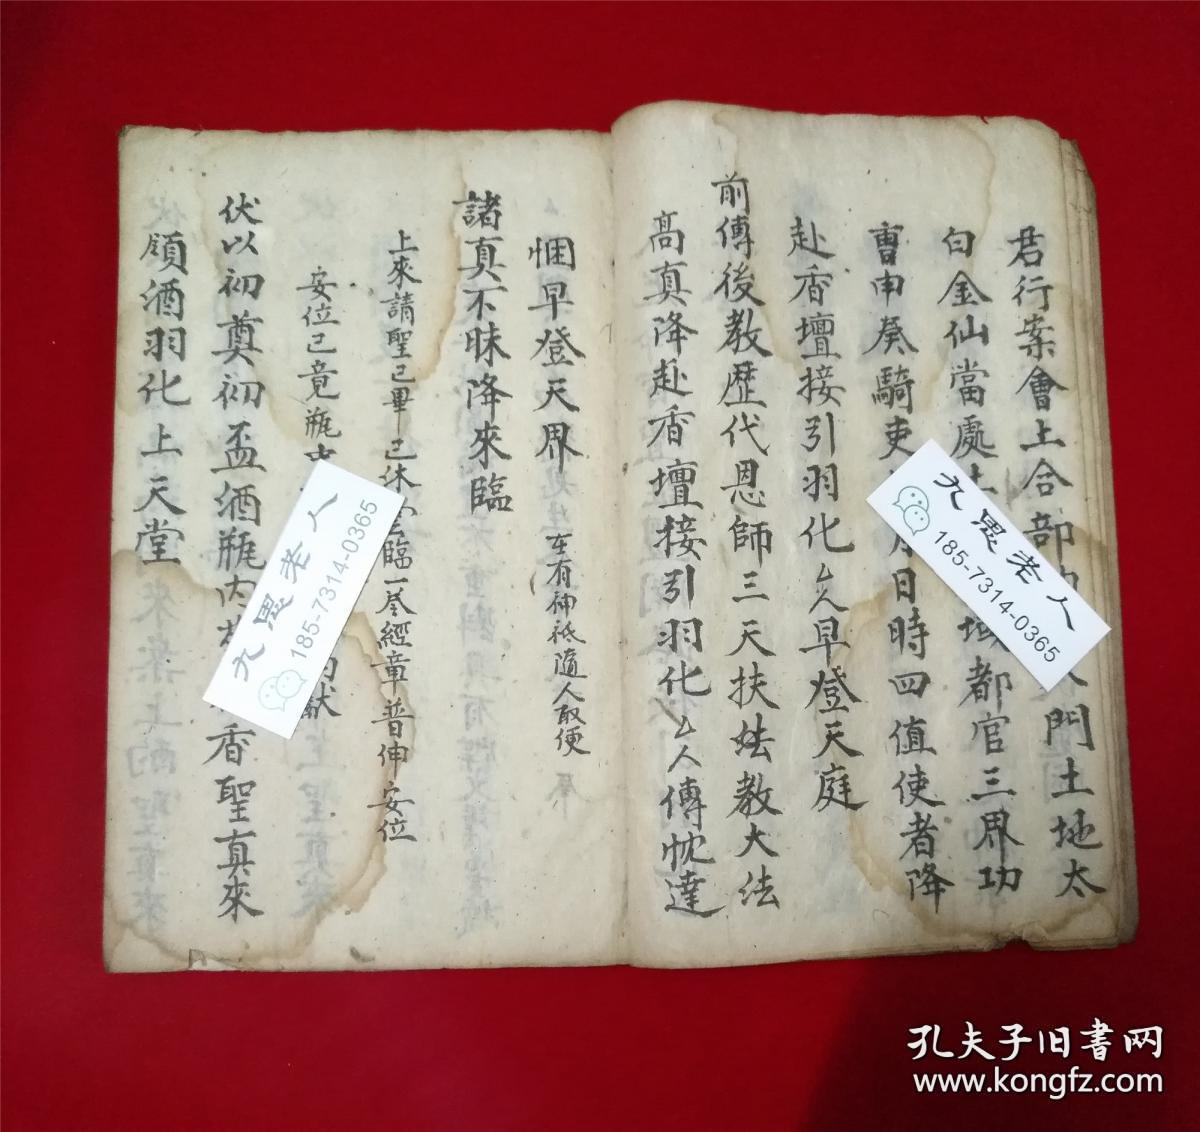 君行案會上合部 門土地太
白金仙當處土 域都官三界功
曹申奏騎吏 月日時四值使者降
赴香壇接引羽化厶人早登天庭
前傳後教歷代恩師三天扶法教大法
高真降赴香壇接引羽化厶人傳忱達
悃早登天界 在有神祗隨人取便
諸真不昧降來臨
上來請聖已畢 臨一卷經章普伸安位
安位已竟瓶 獻
伏以初奠初盃酒瓶內 香聖真來
領酒羽化上天堂
九思老人
185-7314-0365
九思老人
185-7314-0365
孔夫子旧書网
www.kongfz.com